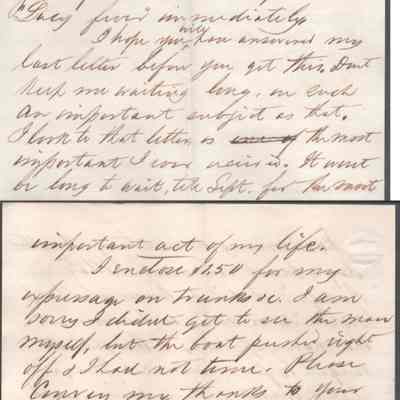 Lacy fired immediately.
I hope you will have answered my
last letter before you get this. Dont
keep me waiting long, on such
an important subject as that.
I look to that letter as one of the most
important I ever received. It wont
be long to wait, till Sept. for the most
important act of my life.
I enclose $2.50 for my
expressage on trunks &c. I am
sorry I didnt get to see the man
myself, but the boat pushed right
off & I had not time. Please
Convey my thanks to your